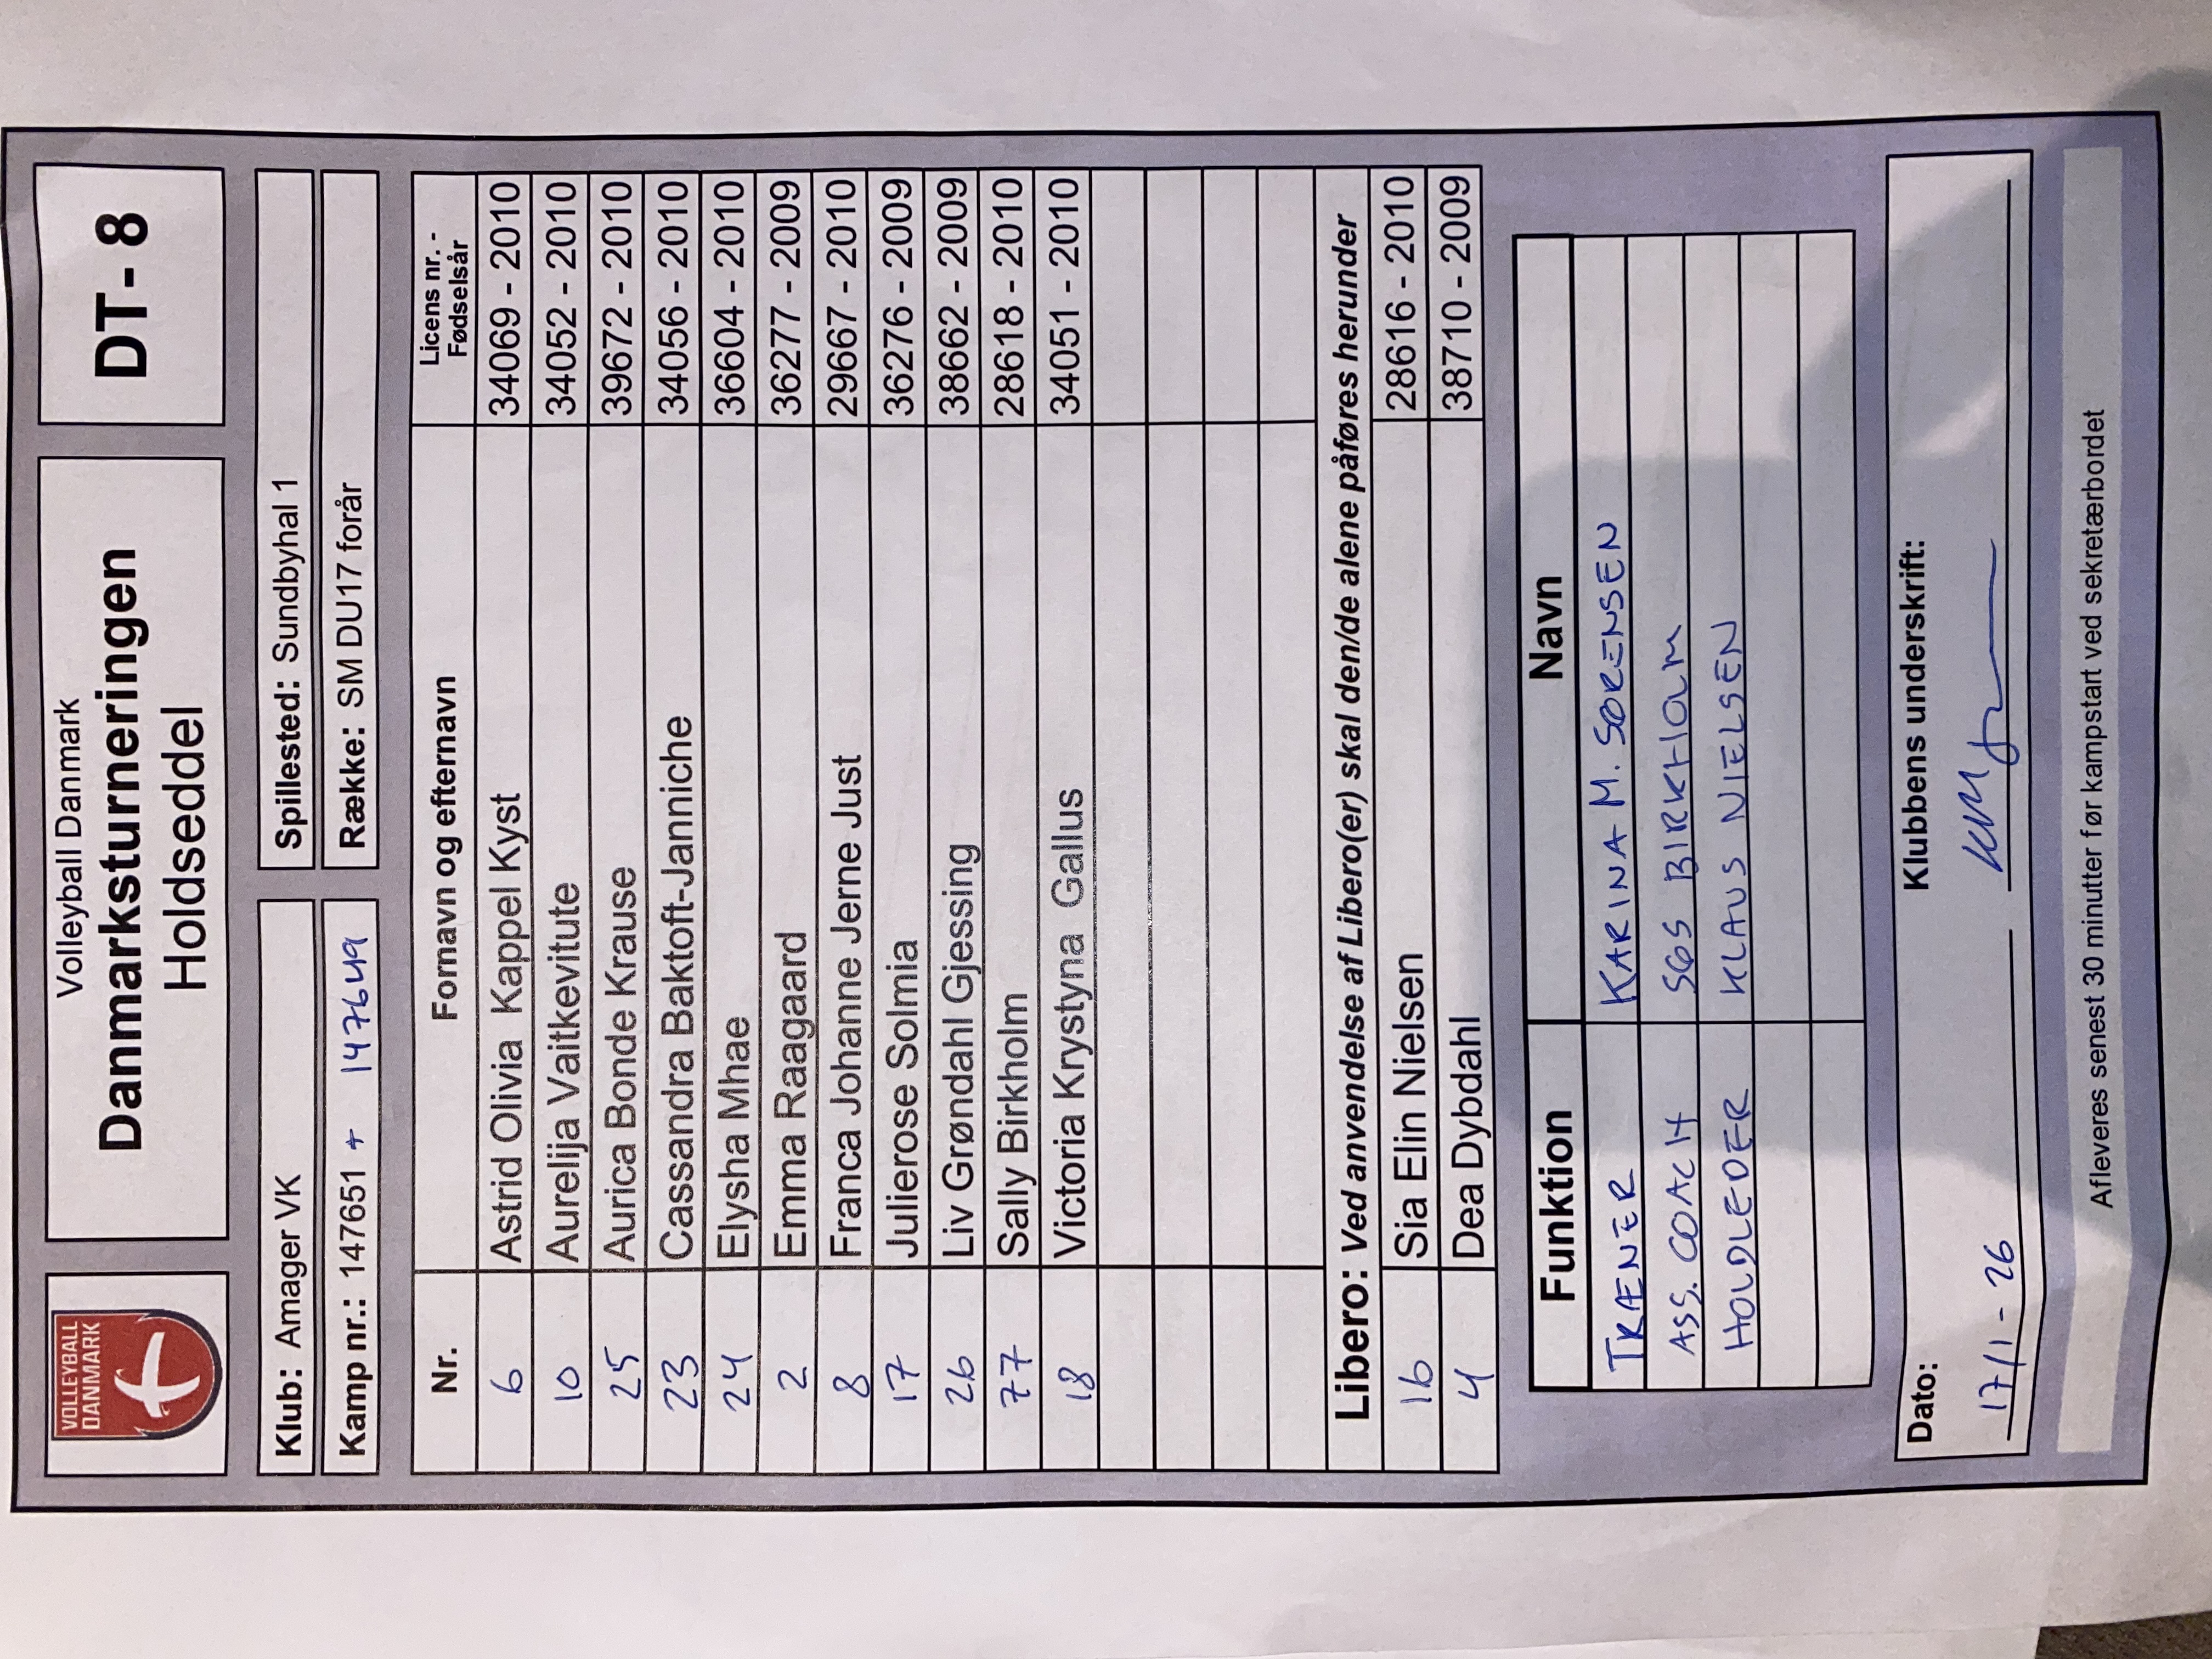 VOLLEYBALL
DANMARK
Volleyball Danmark
Danmarksturneringen
Holdseddel
DT- 8
Klub: Amager VK
Spillested: Sundbyhal 1
Kamp nr.: 147651 + 147649
Række: SM DU17 forår
Nr. Fornavn og efternavn Licens nr. - Fødselsår
6 Astrid Olivia Kappel Kyst 34069 - 2010
10 Aurelija Vaitkevitute 34052 - 2010
25 Aurica Bonde Krause 39672 - 2010
23 Cassandra Baktoft-Janniche 34056 - 2010
24 Elysha Mhae 36604 - 2010
2 Emma Raagaard 36277 - 2009
8 Franca Johanne Jerne Just 29667 - 2010
17 Julierose Solmia 36276 - 2009
26 Liv Grøndahl Gjessing 38662 - 2009
77 Sally Birkholm 28618 - 2010
18 Victoria Krystyna Gallus 34051 - 2010
Libero: Ved anvendelse af Libero(er) skal den/de alene påføres herunder
16 Sia Elin Nielsen 28616 - 2010
4 Dea Dybdahl 38710 - 2009
Funktion Navn
TRÆNER KARINA M. SØRENSEN
ASS. COACH BIRKHOLM
HOLDLEDER KLAUS NIELSEN
Dato: Klubbens underskrift:
17/1 - 26
Afleveres senest 30 minutter før kampstart ved sekretærbordet